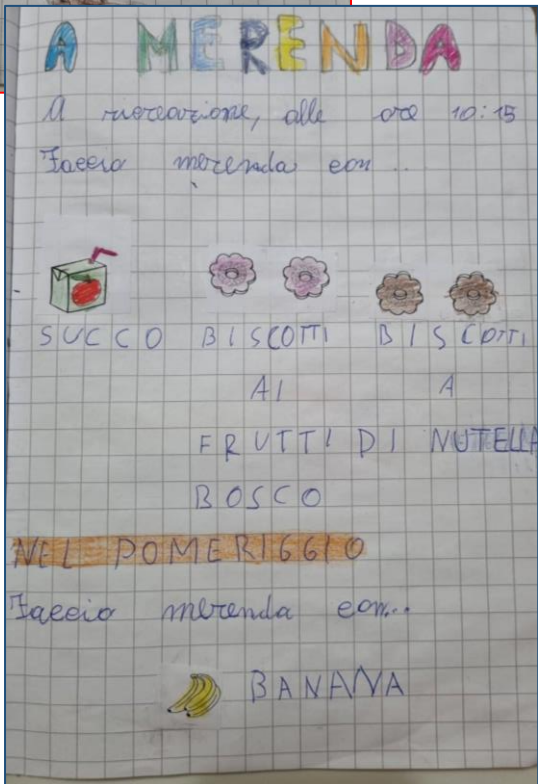 A MERENDA
A ricreazione, alle ore 10:15
Faccio merenda con..
SUCCO BISCOTTI BISCOTTI
AI A
FRUTTI DI NUTELLA
BOSCO
NEL POMERIGGIO
Faccio merenda con...
BANANA